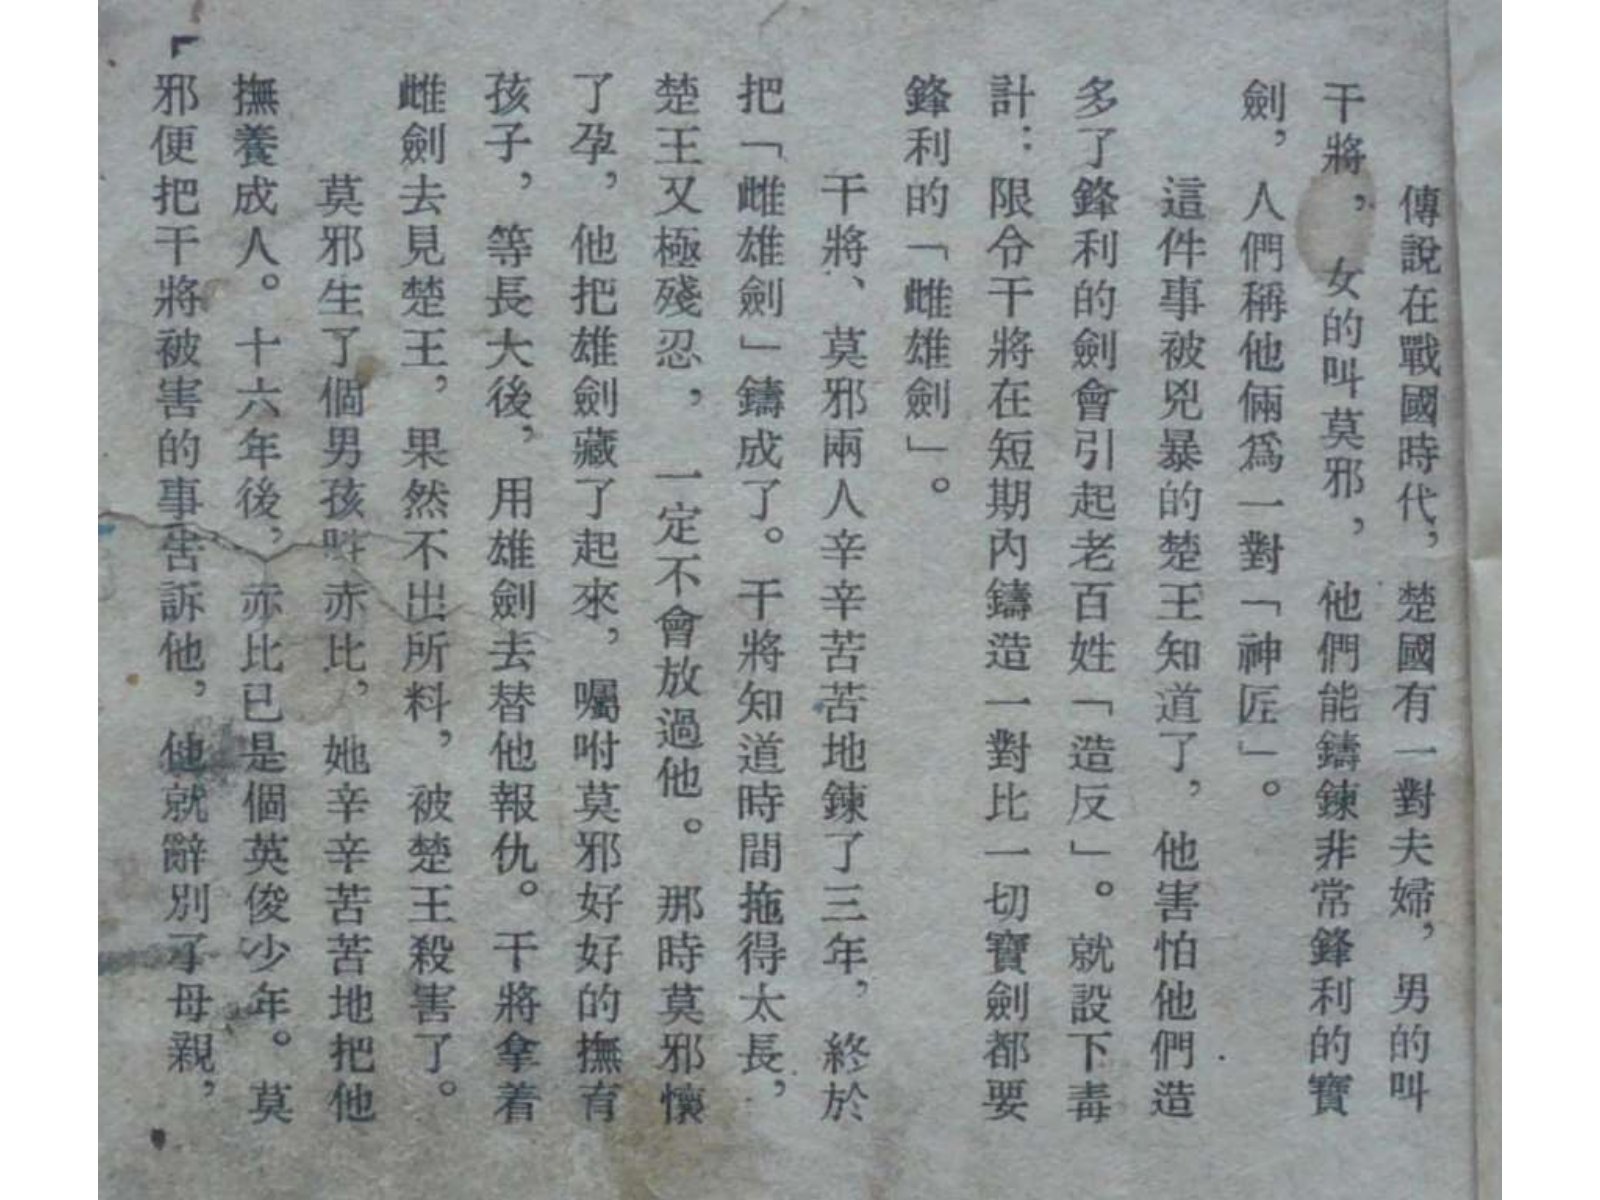 傳說在戰國時代，楚國有一對夫婦，男的叫
干將，女的叫莫邪，他們能鑄鍊非常鋒利的寶
劍，人們稱他倆爲一對「神匠」。
這件事被兇暴的楚王知道了，他害怕他們造
多了鋒利的劍會引起老百姓「造反」。就設下毒
計：限令干將在短期內鑄造一對比一切寶劍都要
鋒利的「雌雄劍」。
干將、莫邪兩人辛辛苦苦地鍊了三年，終於
把「雌雄劍」鑄成了。干將知道時間拖得太長，
楚王又極殘忍，一定不會放過他。那時莫邪懷
了孕，他把雄劍藏了起來，囑咐莫邪好好的撫有
孩子，等長大後，用雄劍去替他報仇。干將拿着
雌劍去見楚王，果然不出所料，被楚王殺害了。
莫邪生了個男孩叫赤比，她辛辛苦苦地把他
撫養成人。十六年後，赤比已是個英俊少年。莫
邪便把干將被害的事告訴他，他就辭別了母親，